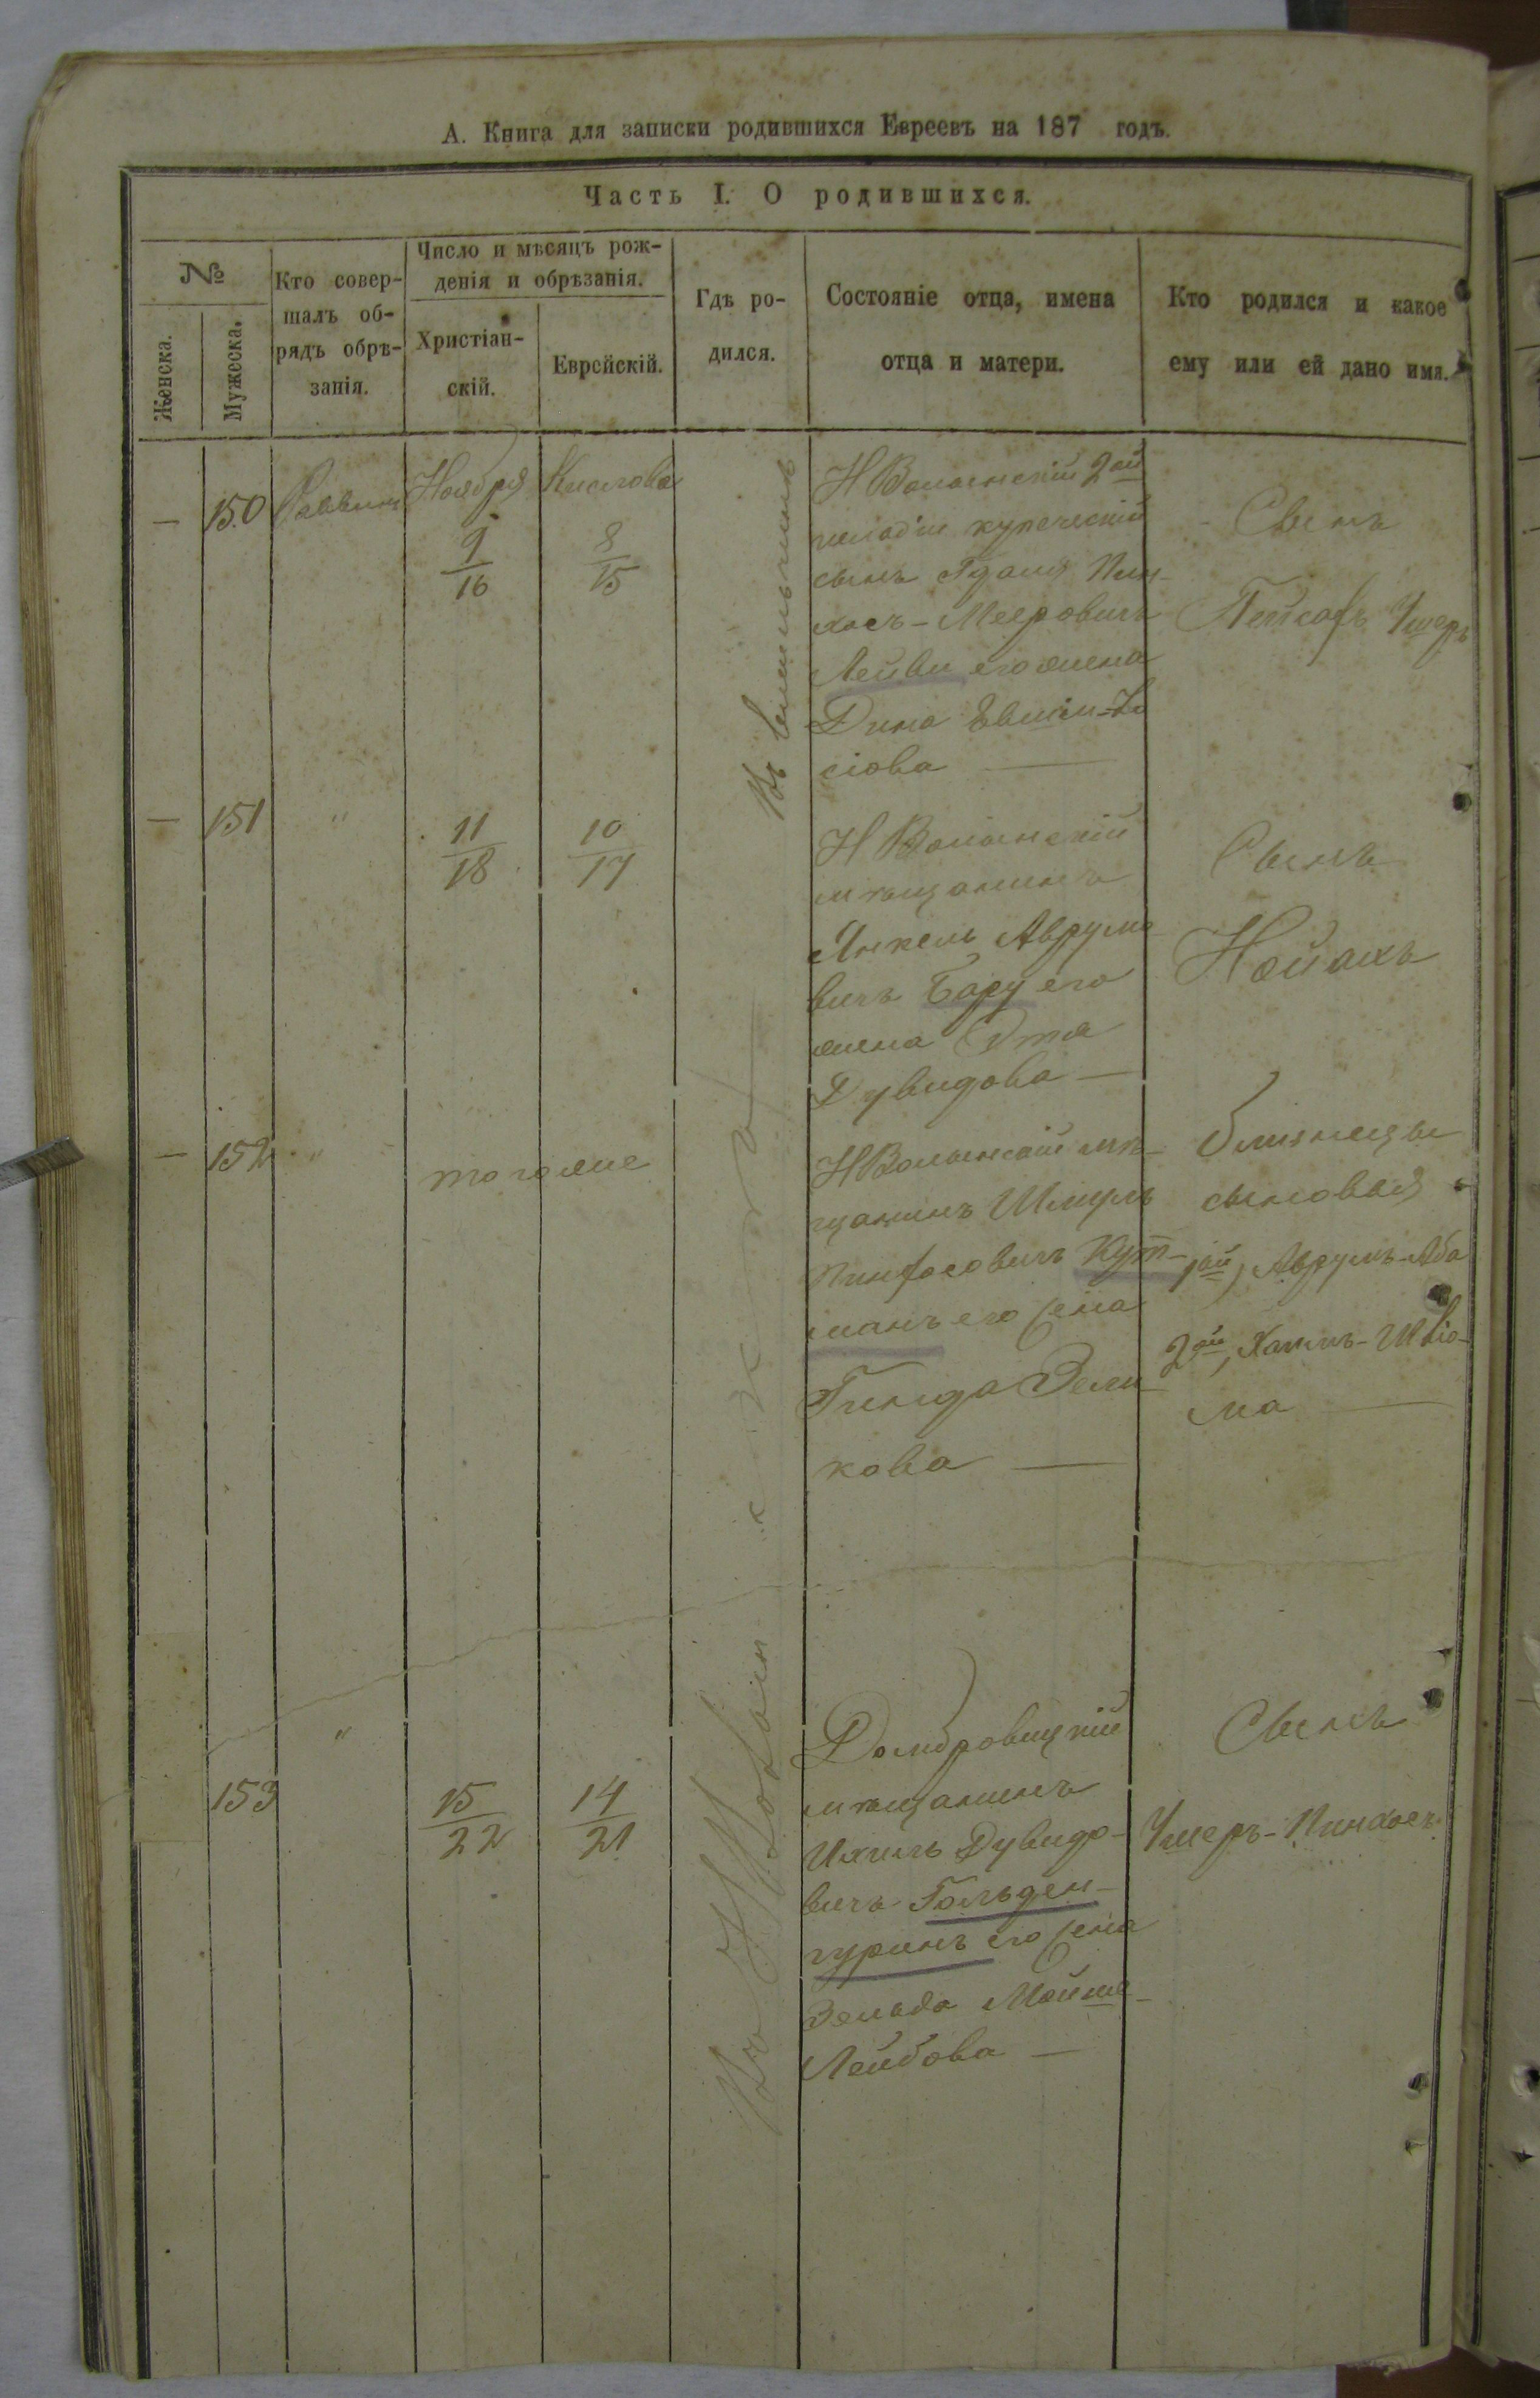 А. Книга для записки родившихся Евреевъ на 187 годъ.
Часть I. О родившихся.
№
Женска.
Мужеска.
Кто совер-
шалъ об-
рядъ обрѣ-
занія.
Число и мѣсяцъ рож-
денія и обрѣзанія.
Христіан-
скій.
Еврейскій.
Гдѣ ро-
дился.
Состояніе отца, имена
отца и матери.
Кто родился и какое
ему или ей дано имя.
—
150
Раввинъ
Ноября
9
16
Кислова
8
15
НВолынскій 2ой
гильдіи купеческій
сынъ Гдаля Пин-
хасъ-Мееровичъ
Лейви его жена
Дина
сіова —
Сынъ
Пейсахъ Ушеръ
—
151
"
11
18
10
17
Н Волынскій
мѣщанинъ
Янкель Аврумо
вичъ Бару его
жена Этя
Дувидова —
Сынъ
Нойахъ
—
152
"
тогоже
НВолынскій мѣ-
щанинъ Шмуль
Пинхасовичъ Кут-
манъ его жена
Гинда Зели-
кова —
близнецы
сыновья
1ой, Аврумъ-Аба
2ой, Хаимъ-Шліо-
ма —
153
"
15
22
14
21
Въ НВолын
Домбровицкій
мѣщанинъ
Ихиль Дувидо-
вичъ Гольден-
гуринъ его жена
Зельда Мойше-
Лейбова —
Сынъ
Ушеръ-Пинхасъ